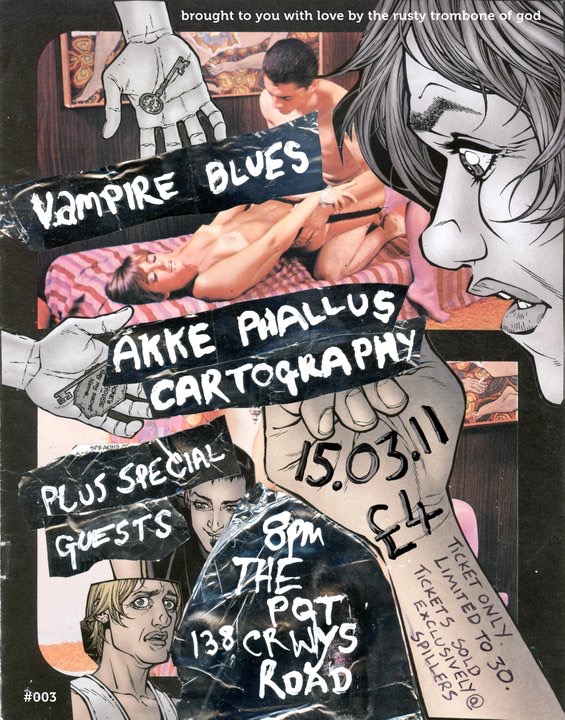 brought to you with love by the rusty trombone of god
VAMPIRE BLUES
AKKE PHALLUS
CARTOGRAPHY
15.03.11
£4
SPEAKING
PLUS SPECIAL
GUESTS
8pm
THE
POT
138 CRWYS
ROAD
TICKET ONLY.
LIMITED TO 30.
TICKETS SOLD
EXCLUSIVELY @
SPILLERS
#003